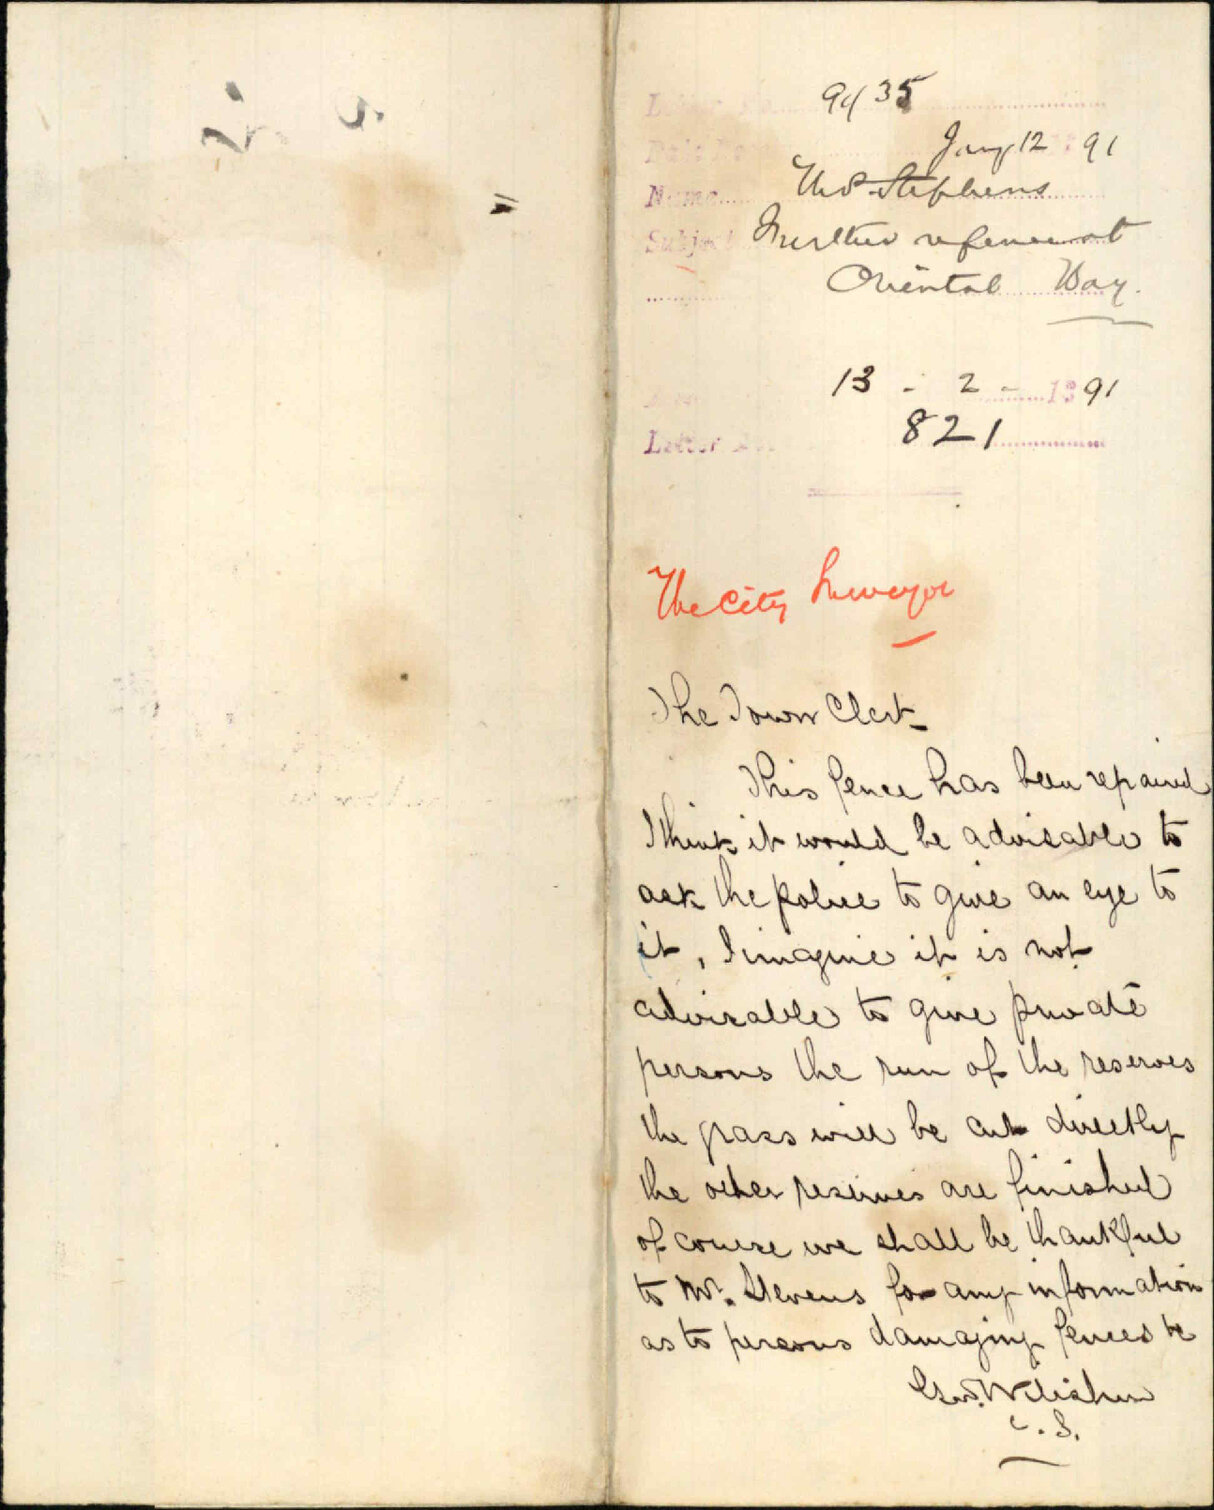 Letter 9435
Date Jany 12 91
Name Thos Stephens
Subject Further re fence at
Oriental Bay.
13 - 2 - 1891
Letter 821
The City Surveyor
The Town Clerk
This fence has been repaired
I think it would be advisable to
ask the police to give an eye to
it, I imagine it is not
advisable to give private
persons the run of the reserves
the grass will be cut directly
the other reserves are finished
of course we shall be thankful
to Mr. Stevens for any information
as to persons damaging fences &c
C. S.